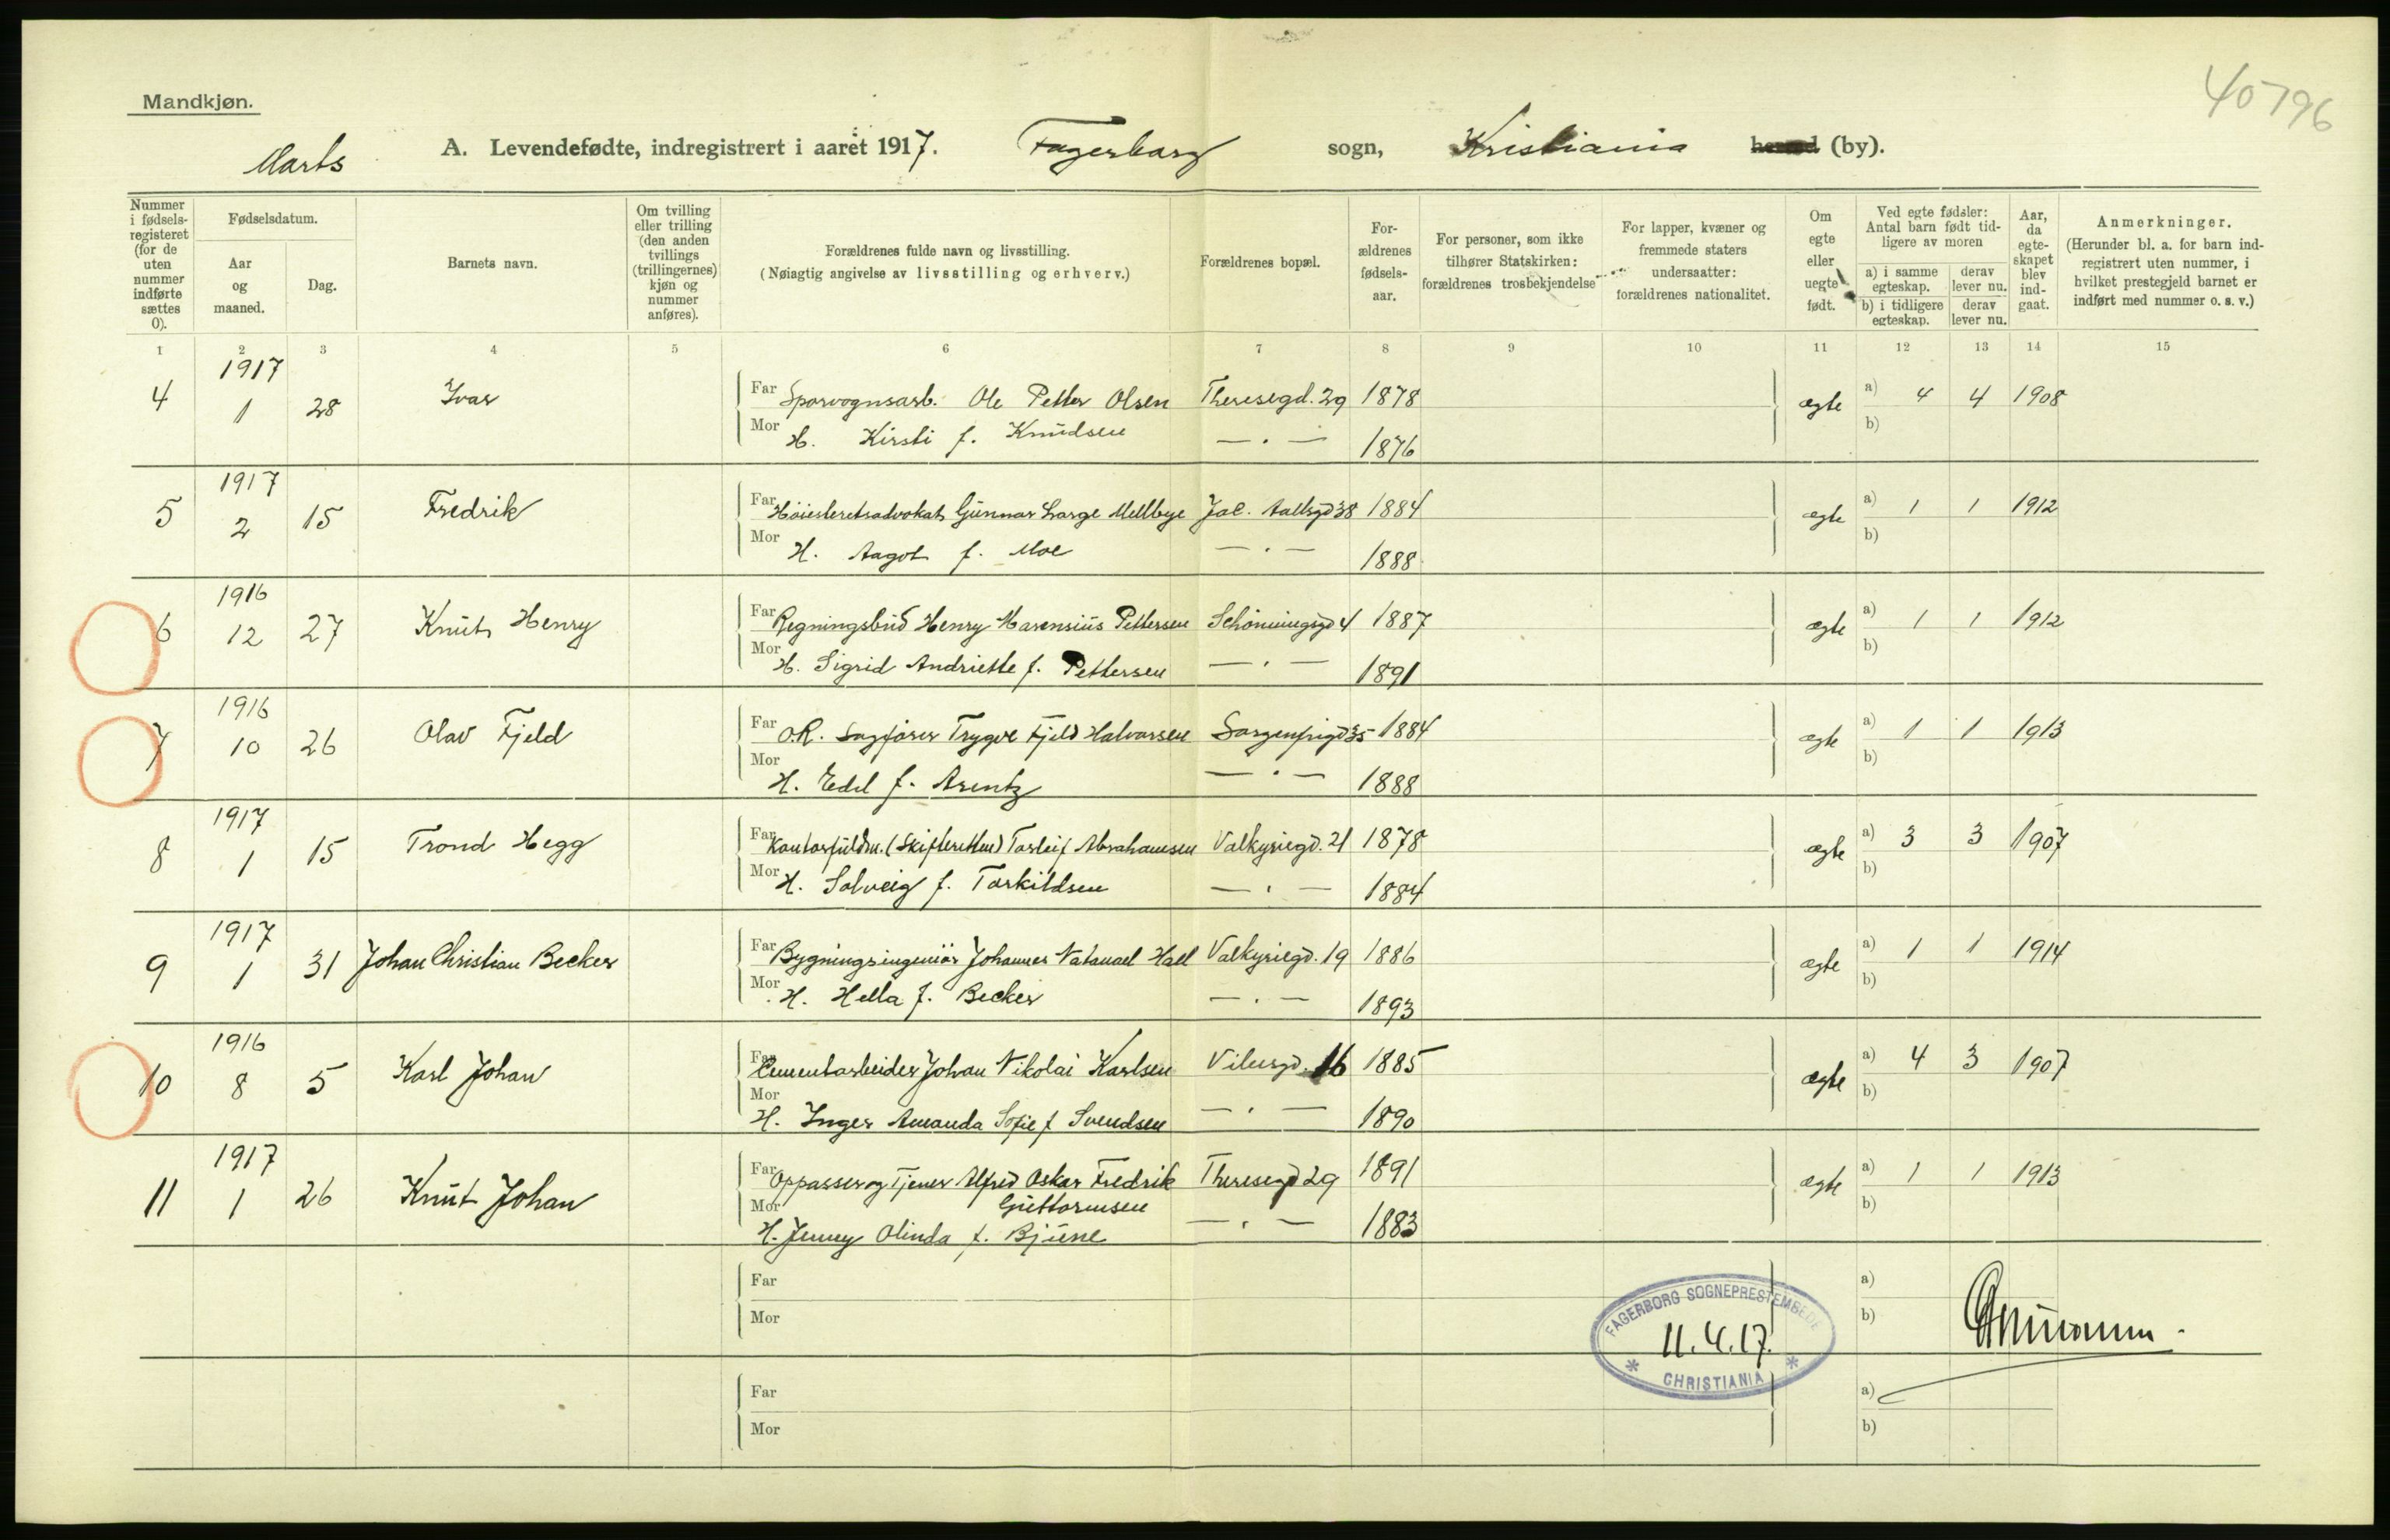 40796
Mandkjøn.
Marts
A. Levendefødte, indregistrert i aaret 1917. Fagerborg sogn, Kristiania herred (by).
Nummer i fødselsregisteret (for de uten nummer indførte sættes 0).
Fødselsdatum.
Aar og maaned.
Dag.
Barnets navn.
Om tvilling eller trilling (den anden tvillings (trillingernes) kjøn og nummer anføres).
Forældrenes fulde navn og livsstilling.
(Nøiagtig angivelse av livsstilling og erhverv.)
Forældrenes bopæl.
Forældrenes fødselsaar.
For personer, som ikke tilhører Statskirken: forældrenes trosbekjendelse
For lapper, kvæner og fremmede staters undersaatter: forældrenes nationalitet.
Om egte eller uegte født.
Ved egte fødsler: Antal barn født tidligere av moren
a) i samme egteskap. derav lever nu.
b) i tidligere egteskap. derav lever nu.
Aar, da egteskapet blev indgaat.
Anmerkninger.
(Herunder bl. a. for barn indregistrert uten nummer, i hvilket prestegjeld barnet er indført med nummer o. s. v.)
1 2 3 4 5 6 7 8 9 10 11 12 13 14 15
4 1917 1 28 Ivar Far Sporvognsarb. Ole Petter Olsen Theresegd. 29 1878 egte a) 4 4 1908
Mor H. Kirsti f. Knudsen — . — 1876 b)
5 1917 2 15 Fredrik Far Høiesteretsadvokat Gunnar Lorge Mellbye Jac. Aallsgd 38 1884 egte a) 1 1 1912
Mor H. Aagot f. Moe — . — 1888 b)
6 1916 12 27 Knut Henry Far Regningsbud Henry Marensius Pettersen Schöningsgd 4 1887 egte a) 1 1 1912
Mor H. Sigrid Andriette f. Pettersen — . — 1891 b)
7 1916 10 26 Olav Fjeld Far O.R. Sagfører Trygve Fjeld Halvorsen Sorgenfrigd 35 1884 egte a) 1 1 1913
Mor H. Edel f. Arentz — . — 1888 b)
8 1917 1 15 Trond Hegg Far Kontorfuldm. (Skifteretten) Torleif Abrahamsen Valkyriegd. 21 1878 egte a) 3 3 1907
Mor H. Solveig f. Torkildsen — . — 1884 b)
9 1917 1 31 Johan Christian Becker Far Bygningsingeniør Johannes Natanael Hall Valkyriegd. 19 1886 egte a) 1 1 1914
Mor H. Hella f. Becker — . — 1893 b)
10 1916 8 5 Karl Johan Far Cementarbeider Johan Nikolai Karlsen Vibesgd. 16 1885 egte a) 4 3 1907
Mor H. Inger Amanda Sofie f Svendsen — . — 1890 b)
11 1917 1 26 Knut Johan Far Oppasser og Tjener Alfred Oskar Fredrik Guttormsen Theresegd 29 1891 egte a) 1 1 1913
Mor H. Jenny Olinda f. Bjune — . — 1883 b)
Far a)
Mor b)
FAGERBORG SOGNEPRESTEMBEDE
11.4.17.
* CHRISTIANIA *
Far a)
Mor b)